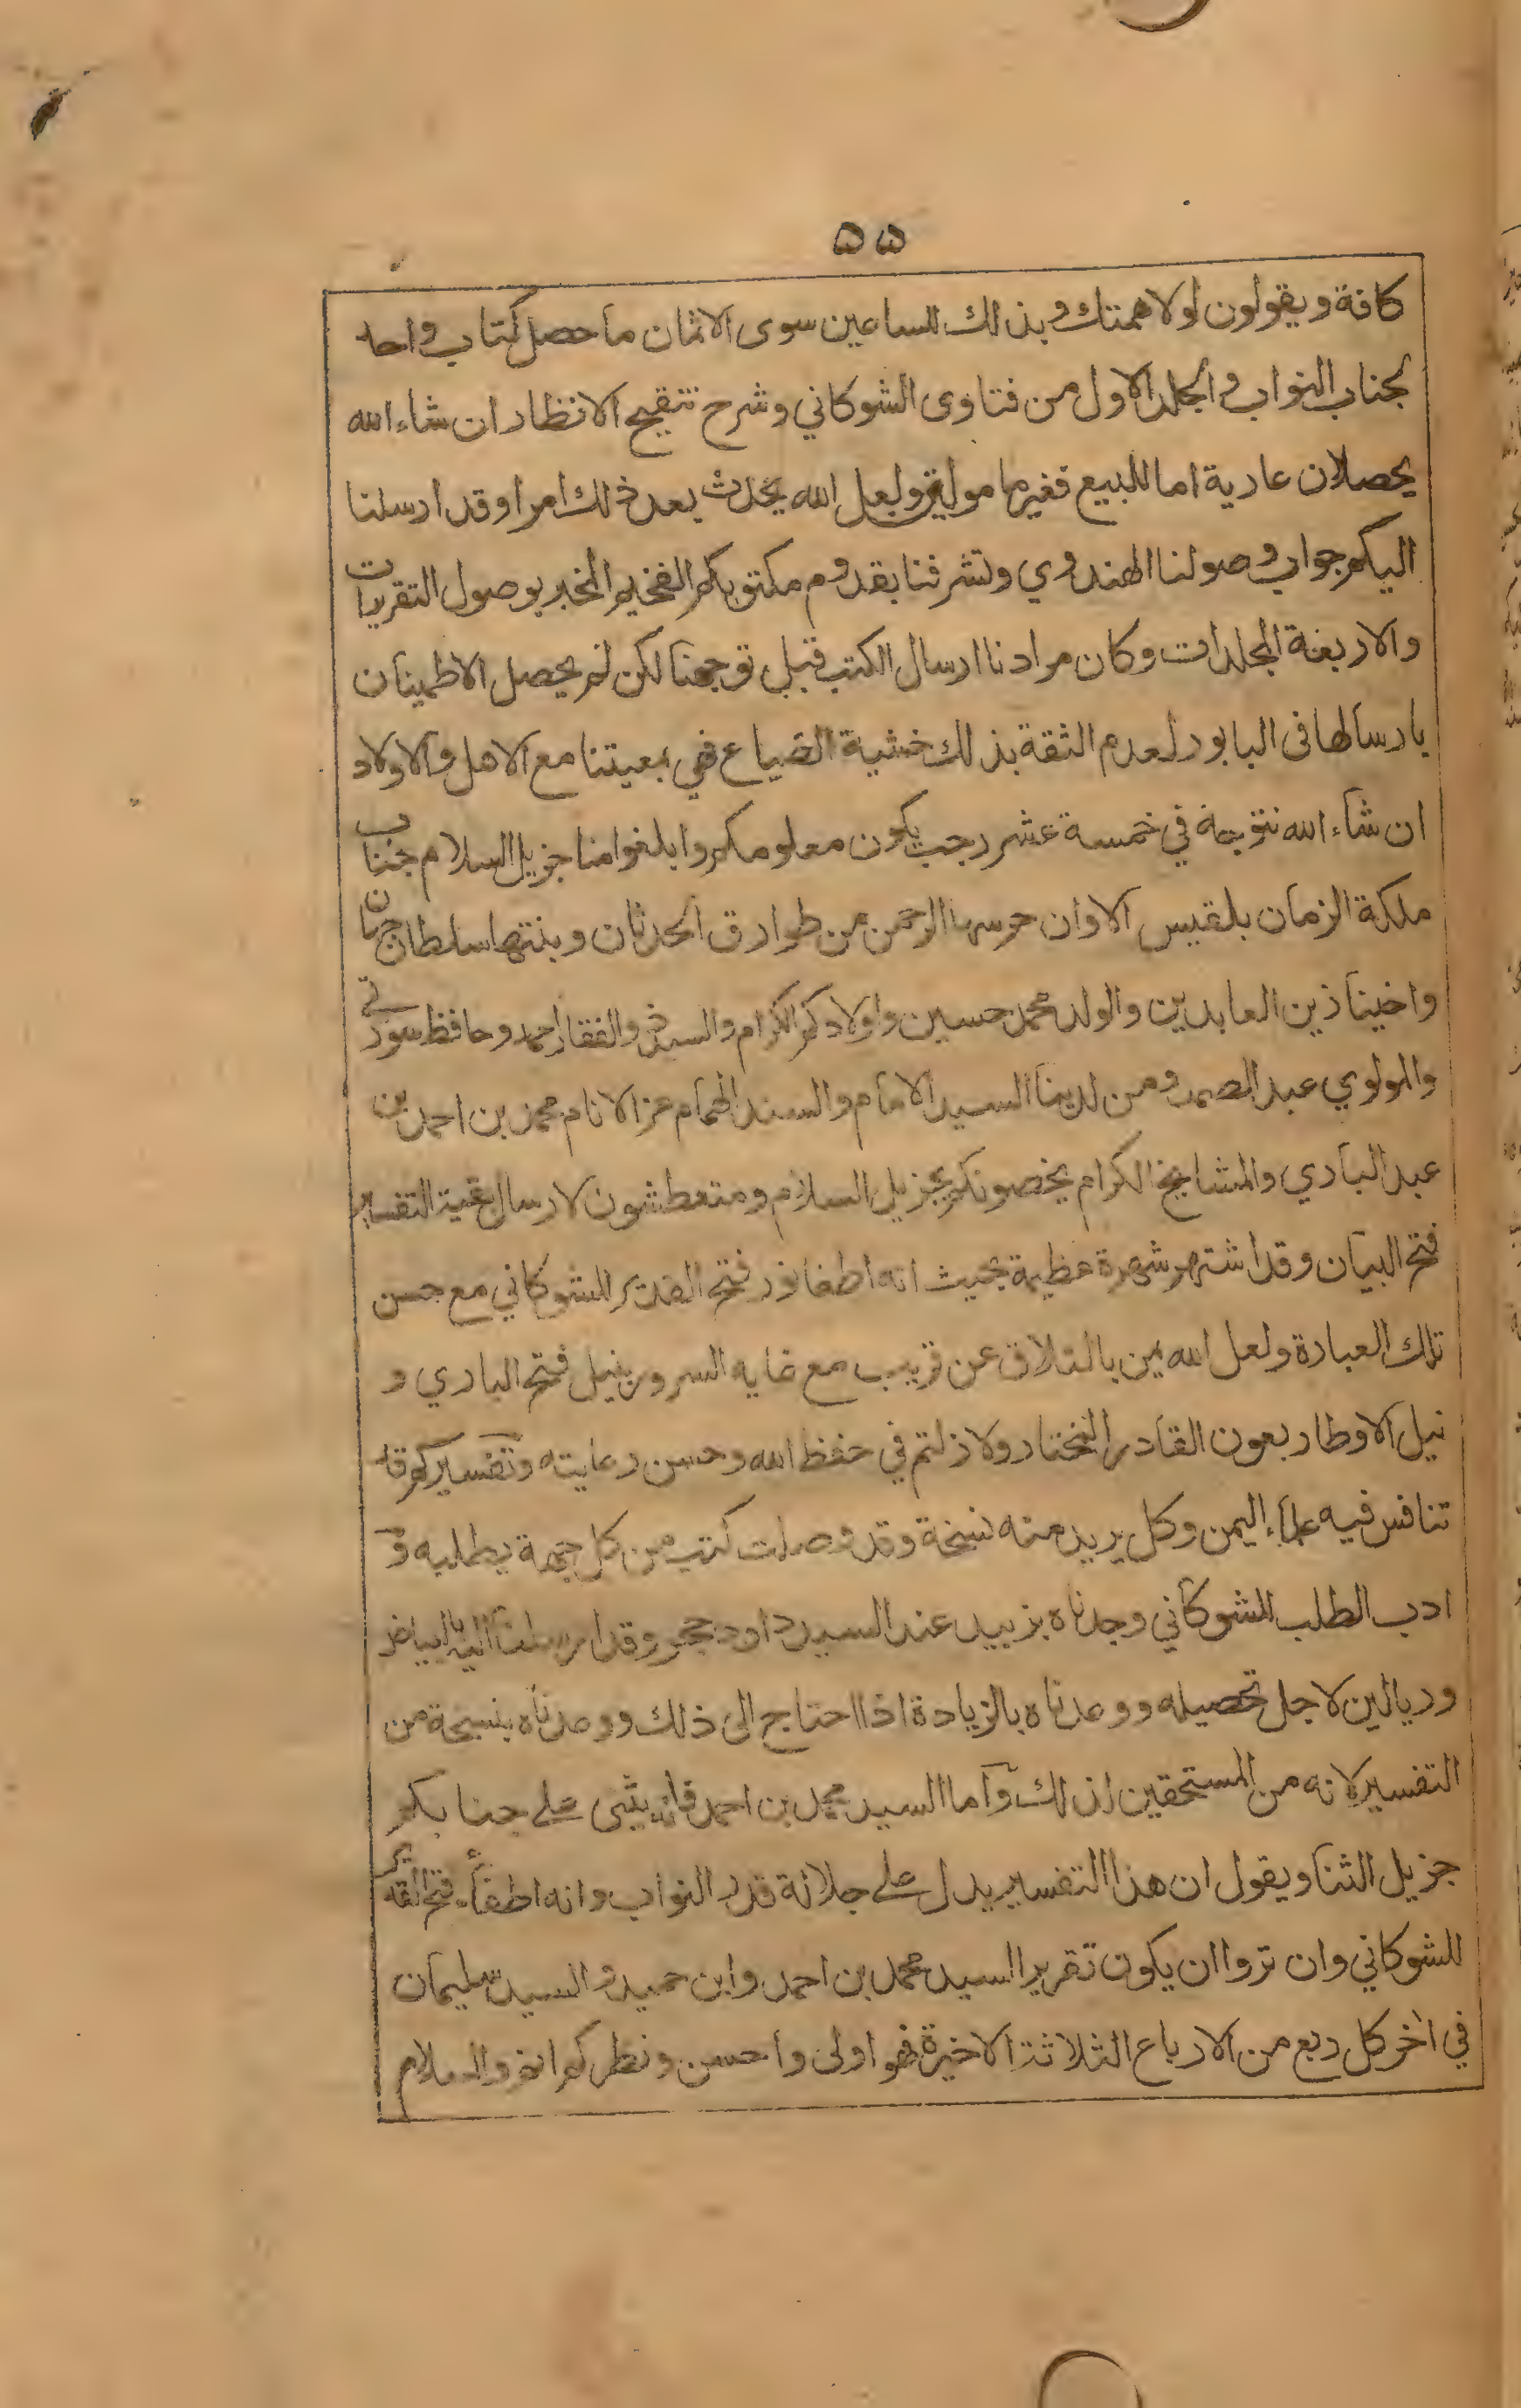 ۵۵
كافة ويقولون لولا همتك وبذلك للساعين سوى الاثمان ما حصل كتاب واحد
لجناب النواب والجلد الاول من فتاوى الشوكاني وشرح تنقيح الانظار ان شاء الله
يحصلان عارية اما للبيع فغير مامولة ولعل الله يحدث بعد ذلك امرا وقد ارسلنا
اليكم جواب وصولنا الهندوي وتشرفنا بقدوم مكتوبكم الفخيم المخبر بوصول التقريرات
والاربعة المجلدات وكان مرادنا ارسال الكتب قبل توجهنا لكن لم يحصل الاطمينان
بارسالها فى البابور لعدم الثقة بذلك خشية الضياع فهي بمعيتنا مع الاهل والاولاد
ان شاء الله نتوجه في خمسة عشر رجب يكون معلومكم وابلغوا منا جزيل السلام جناب
ملكة الزمان بلقيس الاوان حرسها الرحمن من طوارق الحدثان وبنتها سلطان جهان
واخينا زين العابدين والولد محمد حسين واولادكم الكرام والسيد ذو الفقار احمد وحافظ سورتي
والمولوي عبد الصمد ومن لدينا السيد الامام والسند الهمام عز الانام محمد بن احمد بن
عبد الباري والمشايخ الكرام يخصونكم بجزيل السلام ومتعطشون لارسال بقية التفسير
فتح البيان وقد اشتهر شهرة عظيمة بحيث انه اطفا نور فتح القدير للشوكاني مع حسن
تلك العبارة ولعل الله يمن بالتلاق عن قريب مع غاية السرور بنيل فتح الباري و
نيل الاوطار بعون القادر المختار ولا زلتم في حفظ الله وحسن رعايته وتفسيركم قد
تنافس فيه علماء اليمن وكل يريد منه نسخة وقد وصلت كتب من كل جهة بطلبه و
ادب الطلب للشوكاني وجدناه بزبيد عند السيد داود حجر وقد ارسلنا اليه البياض
وريالين لاجل تحصيله ووعدناه بالزيادة اذا احتاج الى ذلك ووعدناه بنسخة من
التفسير لانه من المستحقين لذلك واما السيد محمد بن احمد فانه يثنى على جنابكم
جزيل الثنا ويقول ان هذا التفسير يدل على جلالة قدر النواب وانه اطفأ فتح القدير
للشوكاني وان تروا ان يكون تقرير السيد محمد بن احمد وابن حميد والسيد سليمان
في اخر كل ربع من الارباع الثلاثة الاخيرة فهو اولى واحسن ونظركم اتم والسلام